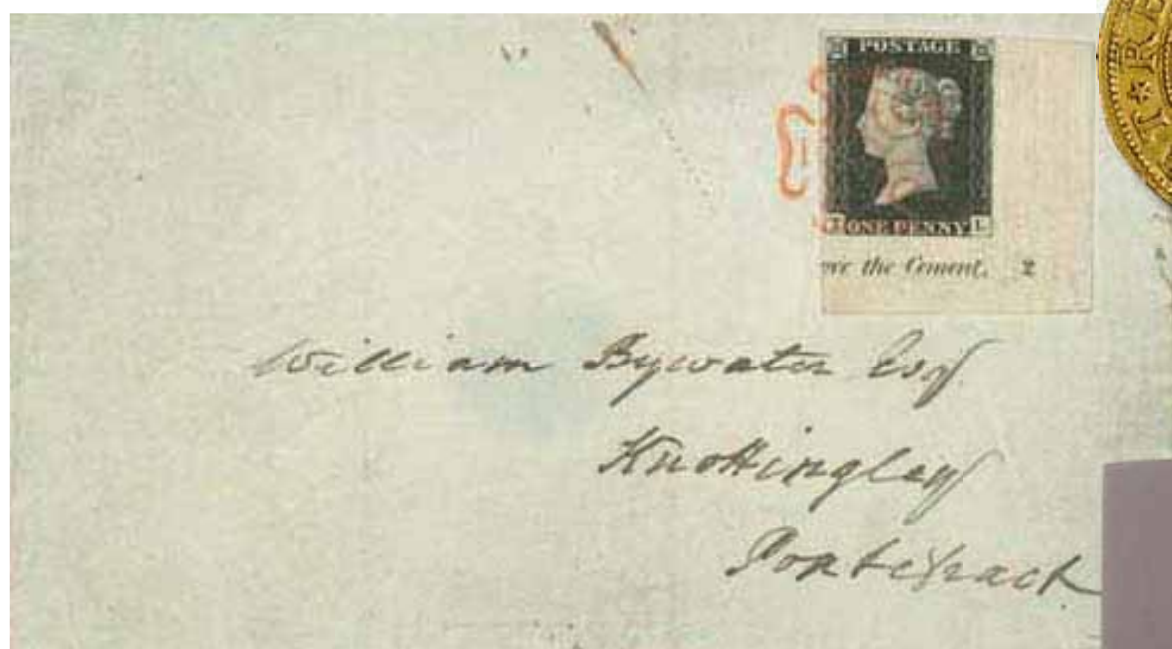 POSTAGE
ONE PENNY
the Cement. 2
William Bywater Esq
Knottingley
Pontefract